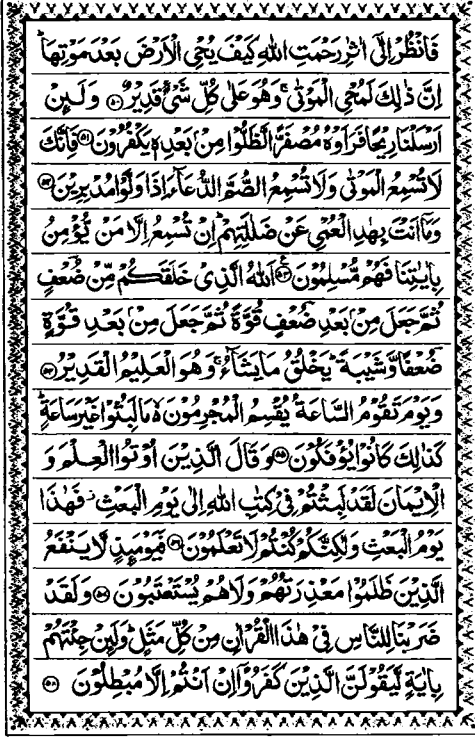 فَانْظُرْ اِلٰۤى اٰثٰرِ رَحْمَتِ اللّٰهِ كَیْفَ یُحْیِ الْاَرْضَ بَعْدَ مَوْتِهَا ؕ
اِنَّ ذٰلِكَ لَمُحْیِ الْمَوْتٰى ۚ وَهُوَ عَلٰى كُلِّ شَیْءٍ قَدِیْرٌ ﴿۵۰﴾ وَلَىِٕنْ
اَرْسَلْنَا رِیْحًا فَرَاَوْهُ مُصْفَرًّا لَّظَلُّوْا مِنْۢ بَعْدِهٖ یَكْفُرُوْنَ ﴿۵۱﴾ فَاِنَّكَ
لَا تُسْمِعُ الْمَوْتٰى وَلَا تُسْمِعُ الصُّمَّ الدُّعَآءَ اِذَا وَلَّوْا مُدْبِرِیْنَ ﴿۵۲﴾
وَمَاۤ اَنْتَ بِهٰدِ الْعُمْیِ عَنْ ضَلٰلَتِهِمْ ؕ اِنْ تُسْمِعُ اِلَّا مَنْ یُّؤْمِنُ
بِاٰیٰتِنَا فَهُمْ مُّسْلِمُوْنَ ﴿۵۳﴾ اَللّٰهُ الَّذِیْ خَلَقَكُمْ مِّنْ ضُعْفٍ
ثُمَّ جَعَلَ مِنْۢ بَعْدِ ضُعْفٍ قُوَّةً ثُمَّ جَعَلَ مِنْۢ بَعْدِ قُوَّةٍ
ضُعْفًا وَّشَیْبَةً ؕ یَخْلُقُ مَا یَشَآءُ ۚ وَهُوَ الْعَلِیْمُ الْقَدِیْرُ ﴿۵۴﴾
وَیَوْمَ تَقُوْمُ السَّاعَةُ یُقْسِمُ الْمُجْرِمُوْنَ ۙ۬ مَا لَبِثُوْا غَیْرَ سَاعَةٍ ؕ
كَذٰلِكَ كَانُوْا یُؤْفَكُوْنَ ﴿۵۵﴾ وَقَالَ الَّذِیْنَ اُوْتُوا الْعِلْمَ وَ
الْاِیْمَانَ لَقَدْ لَبِثْتُمْ فِیْ كِتٰبِ اللّٰهِ اِلٰى یَوْمِ الْبَعْثِ ؗ فَهٰذَا
یَوْمُ الْبَعْثِ وَلٰكِنَّكُمْ كُنْتُمْ لَا تَعْلَمُوْنَ ﴿۵۶﴾ فَیَوْمَىِٕذٍ لَّا یَنْفَعُ
الَّذِیْنَ ظَلَمُوْا مَعْذِرَتُهُمْ وَلَا هُمْ یُسْتَعْتَبُوْنَ ﴿۵۷﴾ وَلَقَدْ
ضَرَبْنَا لِلنَّاسِ فِیْ هٰذَا الْقُرْاٰنِ مِنْ كُلِّ مَثَلٍ ؕ وَلَىِٕنْ جِئْتَهُمْ
بِاٰیَةٍ لَّیَقُوْلَنَّ الَّذِیْنَ كَفَرُوْۤا اِنْ اَنْتُمْ اِلَّا مُبْطِلُوْنَ ﴿۵۸﴾